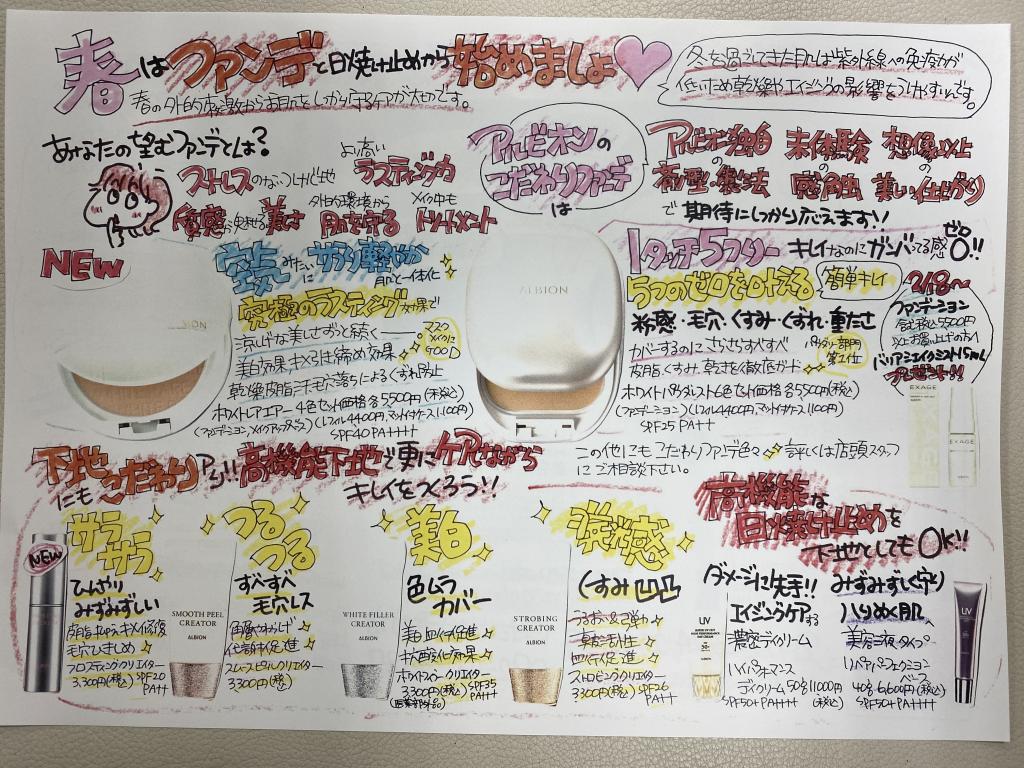 春はファンデと日焼け止めから始めましょ
春の外的刺激からお肌をしっかり守るケアが大切です。
冬を過ごしてきた肌は紫外線への免疫が
低いため乾燥やエイジングの影響をうけやすいです。
あなたの望むファンデとは?
ストレスのないつけ心地
より高い
ラスティング力
質感から魅せる美しさ
外的環境から
肌を守る
メイク中も
トリートメント
アルビオンの
こだわりファンデ
は
アルビオン独自の
剤型・製法
未体験の
感触
想像以上の
美しい仕上がり
で期待にしっかり応えます!!
NEW
空気みたいに サラリ軽やか
肌と一体化
究極のラスティング効果で!
涼しげな美しさずっと続く
美白効果、キメ引き締め効果
乾燥・皮脂・汗・毛穴落ちによるくずれ防止
マスク
メイクに
GOOD
ホワイトエアー 4色セット価格各5,500円(税込)
(レフィル4400円、マット付ケース1,100円)
SPF40 PA++++
ALBION
1タッチ5フリー キレイなのにガンバってる感ゼロ!!
5つのゼロを叶える
簡単キレイ
粉感・毛穴・くすみ・くずれ・重たさ
カバーするのにさらさらすべすべ
皮脂、くすみ、乾きを徹底ガード
パウダリー部門
第1位
ホワイトパウダレスト6色セット価格各5500円(税込)
(ファンデーション)(レフィル4400円、マット付ケース1100円)
SPF25 PA++
2/18〜
ファンデーション
税込5500円
以上お買い上げの方に
15mL
プレゼント!!
EXAGE
EXAGE
この他にもこだわりファンデ色々 詳しくは店頭スタッフ
にご相談下さい。
下地にもこだわりアリ!! 高機能下地で更にケアしながら
キレイをつくろう!!
高機能な
日焼け止めを
下地としてもOK!!
NEW
サラサラ
ひんやり
みずみずしい
毛穴ひきしめ
フロスティングクリエイター
3,300円(税込) SPF20
PA++
SMOOTH PEEL
CREATOR
ALBION
つるつる
すべすべ
毛穴レス
角層やわらげ
代謝促進
スムースピールクリエイター
3,300円(税込)
WHITE FILLER
CREATOR
ALBION
美白
色ムラ
カバー
美白血行促進
抗酸化効果
ホワイトフィラークリエイター
3,300円(税込) SPF35
PA+++
(医薬部外品)
STROBING
CREATOR
ALBION
発光感
くすみ凹凸
うるおい&弾力
血行促進
ストロビングクリエイター
3300円(税込) SPF26
PA++
UV
ダメージに先手!!
エイジングケアする
濃密デイクリーム
ハイパフォマンス
デイクリーム50g 11000円
SPF50+ PA++++ (税込)
みずみずしく守り
ハリめく肌
美容液タイプ
40g 6,600円(税込)
SPF50+PA++++
UV